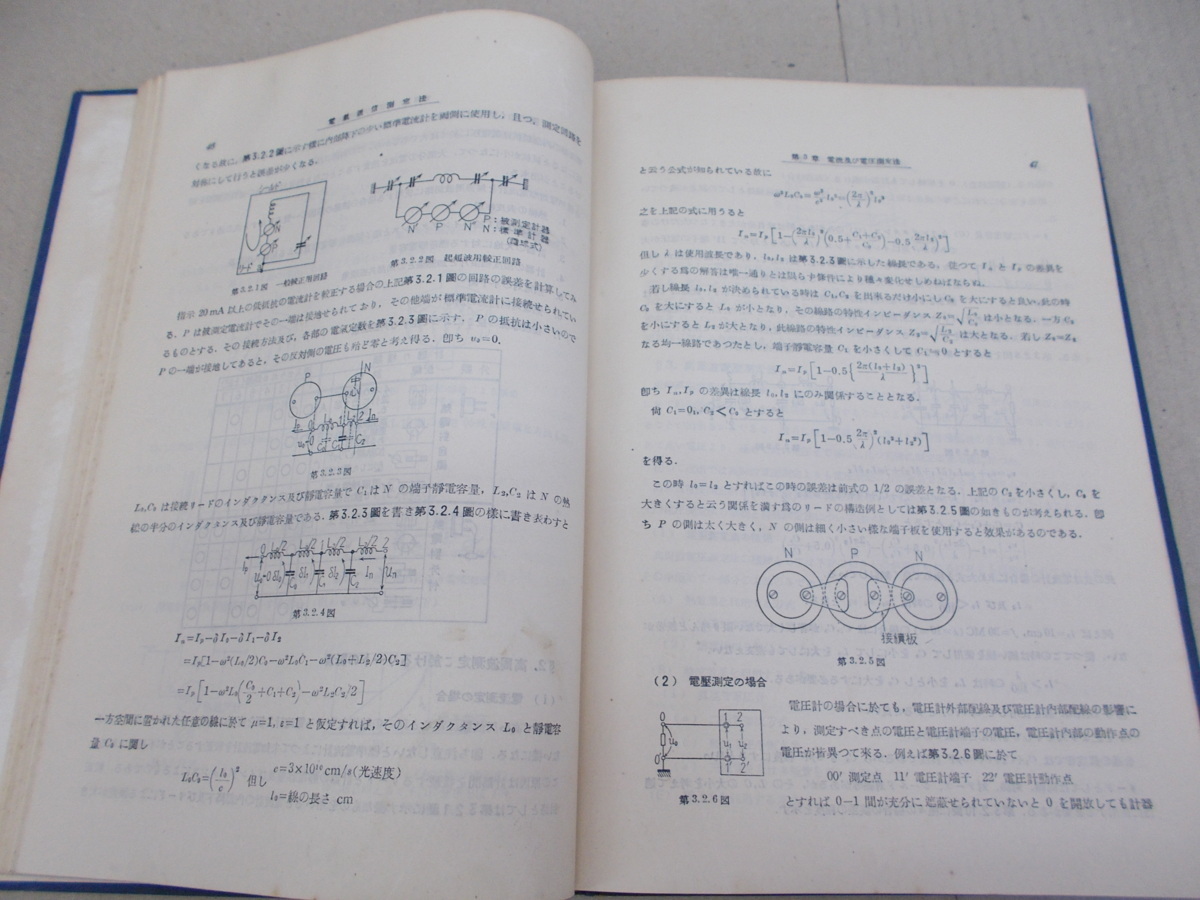 電氣通信測定法
くなる故に，第3.2.2圖に示す様に内部降下の少い標準電流計を兩側に使用し，且つ，測定回路を
対称にして行うと誤差が少くなる．
シールド
リード
第3.2.1図 一般較正用回路
N P N
P：被測定計器
N：標準計器
第3.2.2図 超短波用較正回路
指示 20mA 以上の低抵抗の電流計を較正する場合の上記第3.2.1圖の回路の誤差を計算してみ
る．P は被測定電流計でその一端は接地せられており，その他端が標準電流計に接続せられてい
るものとする．その接続方法及び，各部の電氣定数を第3.2.3圖に示す．P の抵抗は小さいので
P の一端が接地してあると，その反対側の電圧も殆ど零と考え得る．卽ち u₀=0.
P N
第3.2.3図
L₀,C₀ は接続リードのインダクタンス及び靜電容量で C₁ は N の端子靜電容量，L₂,C₂ は N の熱
線の半分のインダクタンス及び靜電容量である．第3.2.3圖を書き第3.2.4圖の様に書き表わすと
第3.2.4図
Iₙ=Iₚ−δI₀−δI₁−δI₂
=Iₚ[1−ω²(L₀/2)C₀−ω²L₀C₁−ω²(L₀+L₂/2)C₂]
=Iₚ[1−ω²L₀(C₀/2+C₁+C₂)−ω²L₂C₂/2]
一方空間に置かれた任意の線に於て μ=1, ε=1 と仮定すれば，そのインダクタンス L₀ と靜電容
量 C₀ に関し
L₀C₀=(l₀/c)² 但し c=3×10¹⁰cm/s(光速度)
l₀=線の長さ cm
第3章 電流及び電圧測定法
47
と云う公式が知られている故に
之を上記の式に用うると
但し λ は使用波長であり，l₀,l₂ は第3.2.3圖に示した線長である．従つて Iₙ と Iₚ の差異を
少くする爲の解答は唯一通りとは限らず條件により種々変化せしめねばならぬ．
若し線長 l₀,l₂ が決められている時は C₁,C₂ を出來るだけ小にし C₀ を大にすると良い．此の時
C₀ を大にすると L₀ が小となり，その線路の特性インピーダンス Z₀=√L₀/C₀ は小となる．一方 C₂
を小にすると L₂ が大となり，此線路の特性インピーダンス Z₂=√L₂/C₂ は大となる．若し Z₀=Z₂
なる均一線路であつたとし，端子靜電容量 C₁ を小さくして C₁≒0 とすると
Iₙ=Iₚ[1−0.5{2π(l₀+l₂)/λ}²]
卽ち Iₙ,Iₚ の差異は線長 l₀,l₂ にのみ関係することとなる．
尚 C₁=0, C₂<C₀ とすると
Iₙ=Iₚ[1−0.5(2π/λ)²(l₀²+l₂²)]
を得る．
この時 l₀=l₂ とすればこの時の誤差は前式の 1/2 の誤差となる．上記の C₂ を小さくし，C₀ を
大きくすると云う関係を満す爲のリードの構造例としては第3.2.5圖の如きものが考えられる．卽
ち P の側は太く大きく，N の側は細く小さい様な端子板を使用すると効果があるのである．
N P N
接續板
第3.2.5図
(2) 電壓測定の場合
電圧計の場合に於ても，電圧計外部配線及び電圧計内部配線の影響に
より，測定すべき点の電圧と電圧計端子の電圧，電圧計内部の動作点の
電圧が皆異つて來る．例えば第3.2.6圖に於て
00′ 測定点 11′ 電圧計端子 22′ 電圧計動作点
とすれば 0−1 間が充分に遮蔽せられていないと 0 を開放しても計器
第3.2.6図